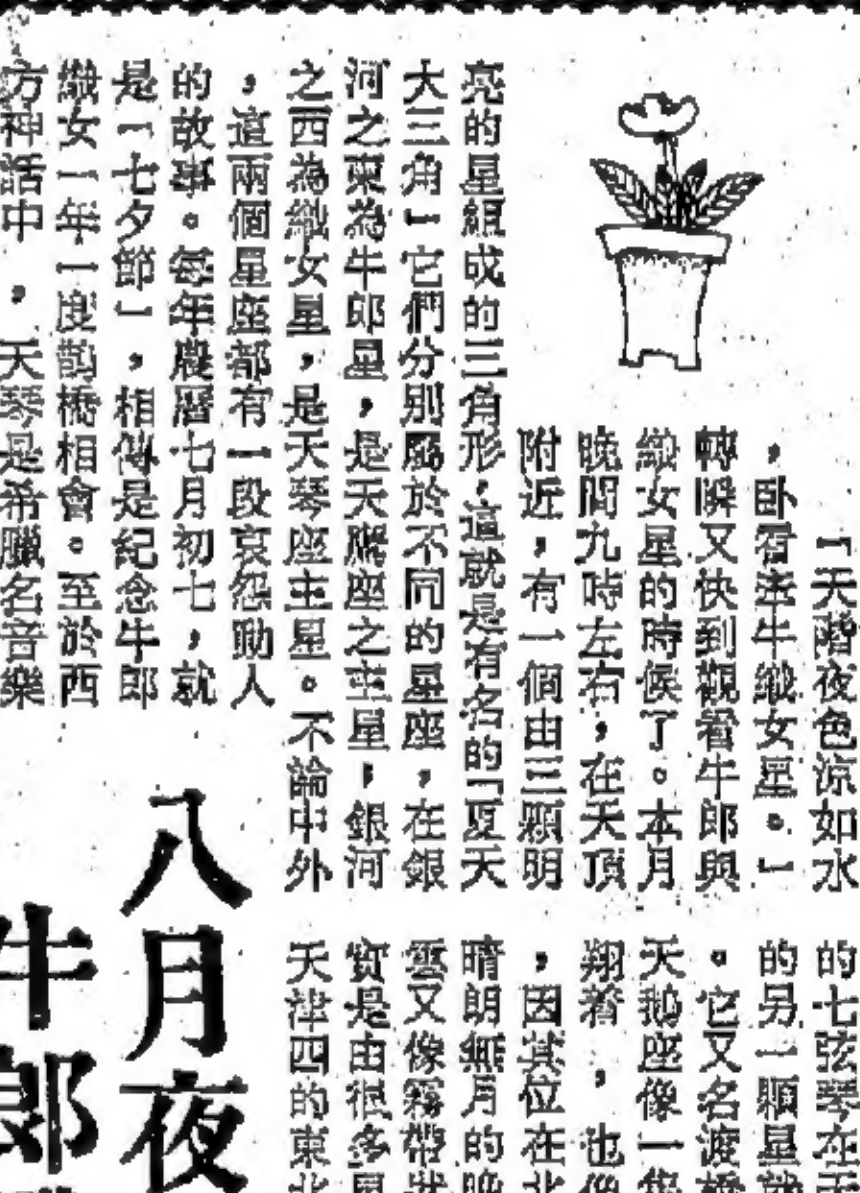 「天階夜色涼如水
，臥看牽牛織女星。」
轉瞬又快到觀看牛郎與
織女星的時候了。本月
晚間九時左右，在天頂
附近，有一個由三顆明
亮的星組成的三角形，這就是有名的「夏天
大三角」它們分別屬於不同的星座，在銀
河之東為牛郎星，是天鷹座之主星，銀河
之西為織女星，是天琴座主星。不論中外
，這兩個星座都有一段哀怨動人
的故事。每年農曆七月初七，就
是「七夕節」，相傳是紀念牛郎
織女一年一度鵲橋相會。至於西
方神話中，天琴是希臘名音樂
的七弦琴在天
的另一顆星就
。它又名渡橋
天鵝座像一隻
翔着，也像
，因其位在北
晴朗無月的晚
雲又像霧帶狀
實是由很多星
天津四的東北
八月夜
牛郎